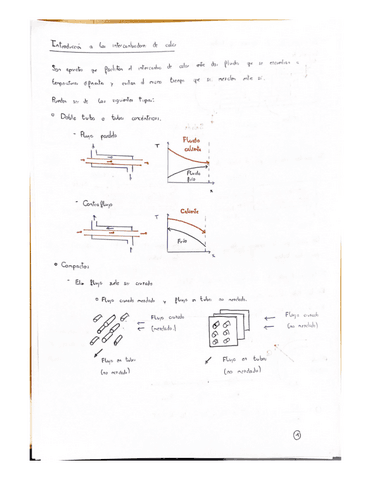 Introducción a los intercambiadores de calor
Son aparatos que facilitan el intercambio de calor entre dos fluidos que se encuentran a
temperaturas diferentes y evitan al mismo tiempo que se mezclen entre sí.
Pueden ser de los siguientes tipos:
Doble tubo o tubos concéntricos.
- Flujo paralelo
T
Fluido caliente
Fluido frío
x
- Contraflujo
T
Caliente
Frío
x
Compactos
- Flujo cruzado mezclado y flujo en tubos no mezclado.
Flujo cruzado
(mezclado)
Flujo en tubos
(no mezclado)
Flujo cruzado
(no mezclado)
Flujo en tubos
(no mezclado)
1